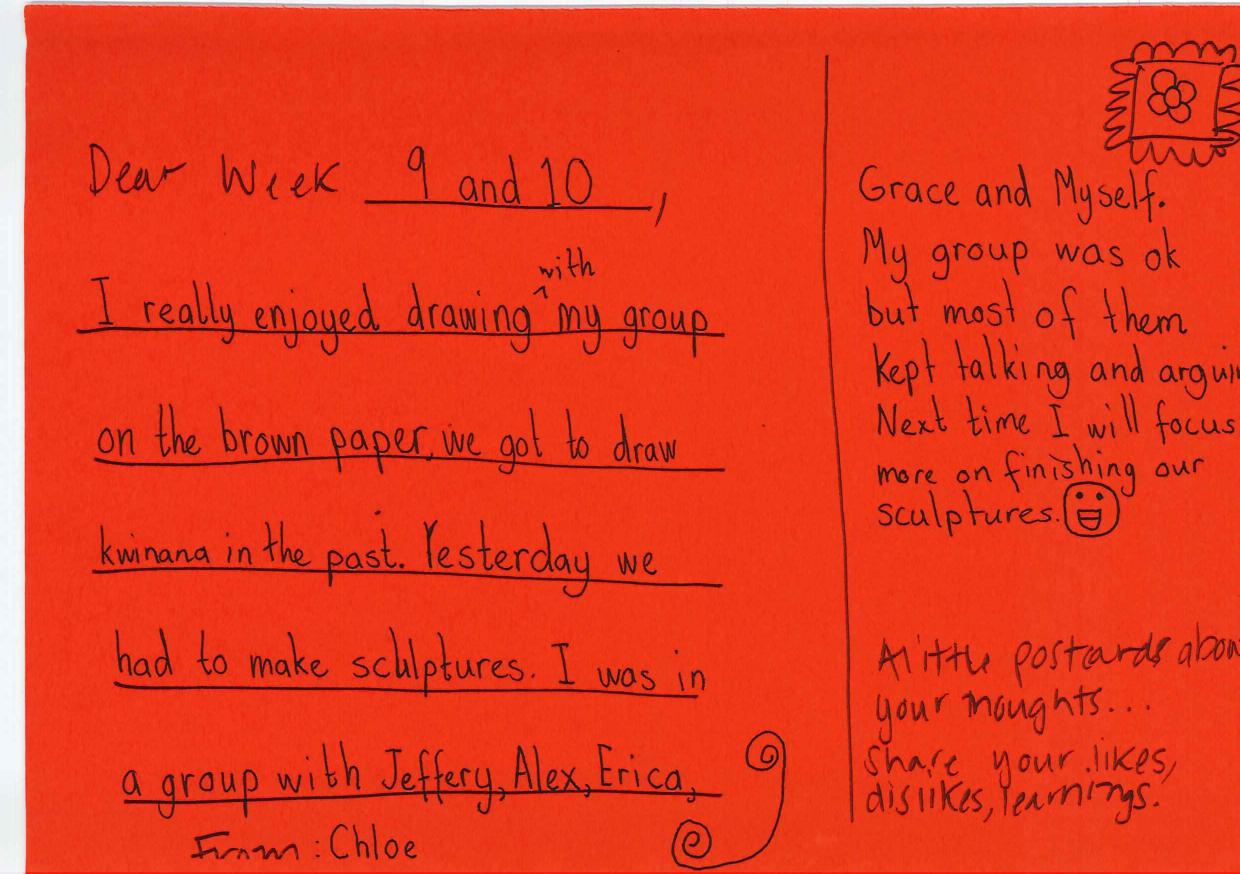 Dear Week 9 and 10,
I really enjoyed drawing ^with my group
on the brown paper, we got to draw
kwinana in the past. Yesterday we
had to make sculptures. I was in
a group with Jeffery, Alex, Erica,
From: Chloe
Grace and Myself.
My group was ok
but most of them
kept talking and arguin
Next time I will focus
more on finishing our
sculptures.
A little postcards abou
your thoughts...
Share your likes,
dislikes, learnings.